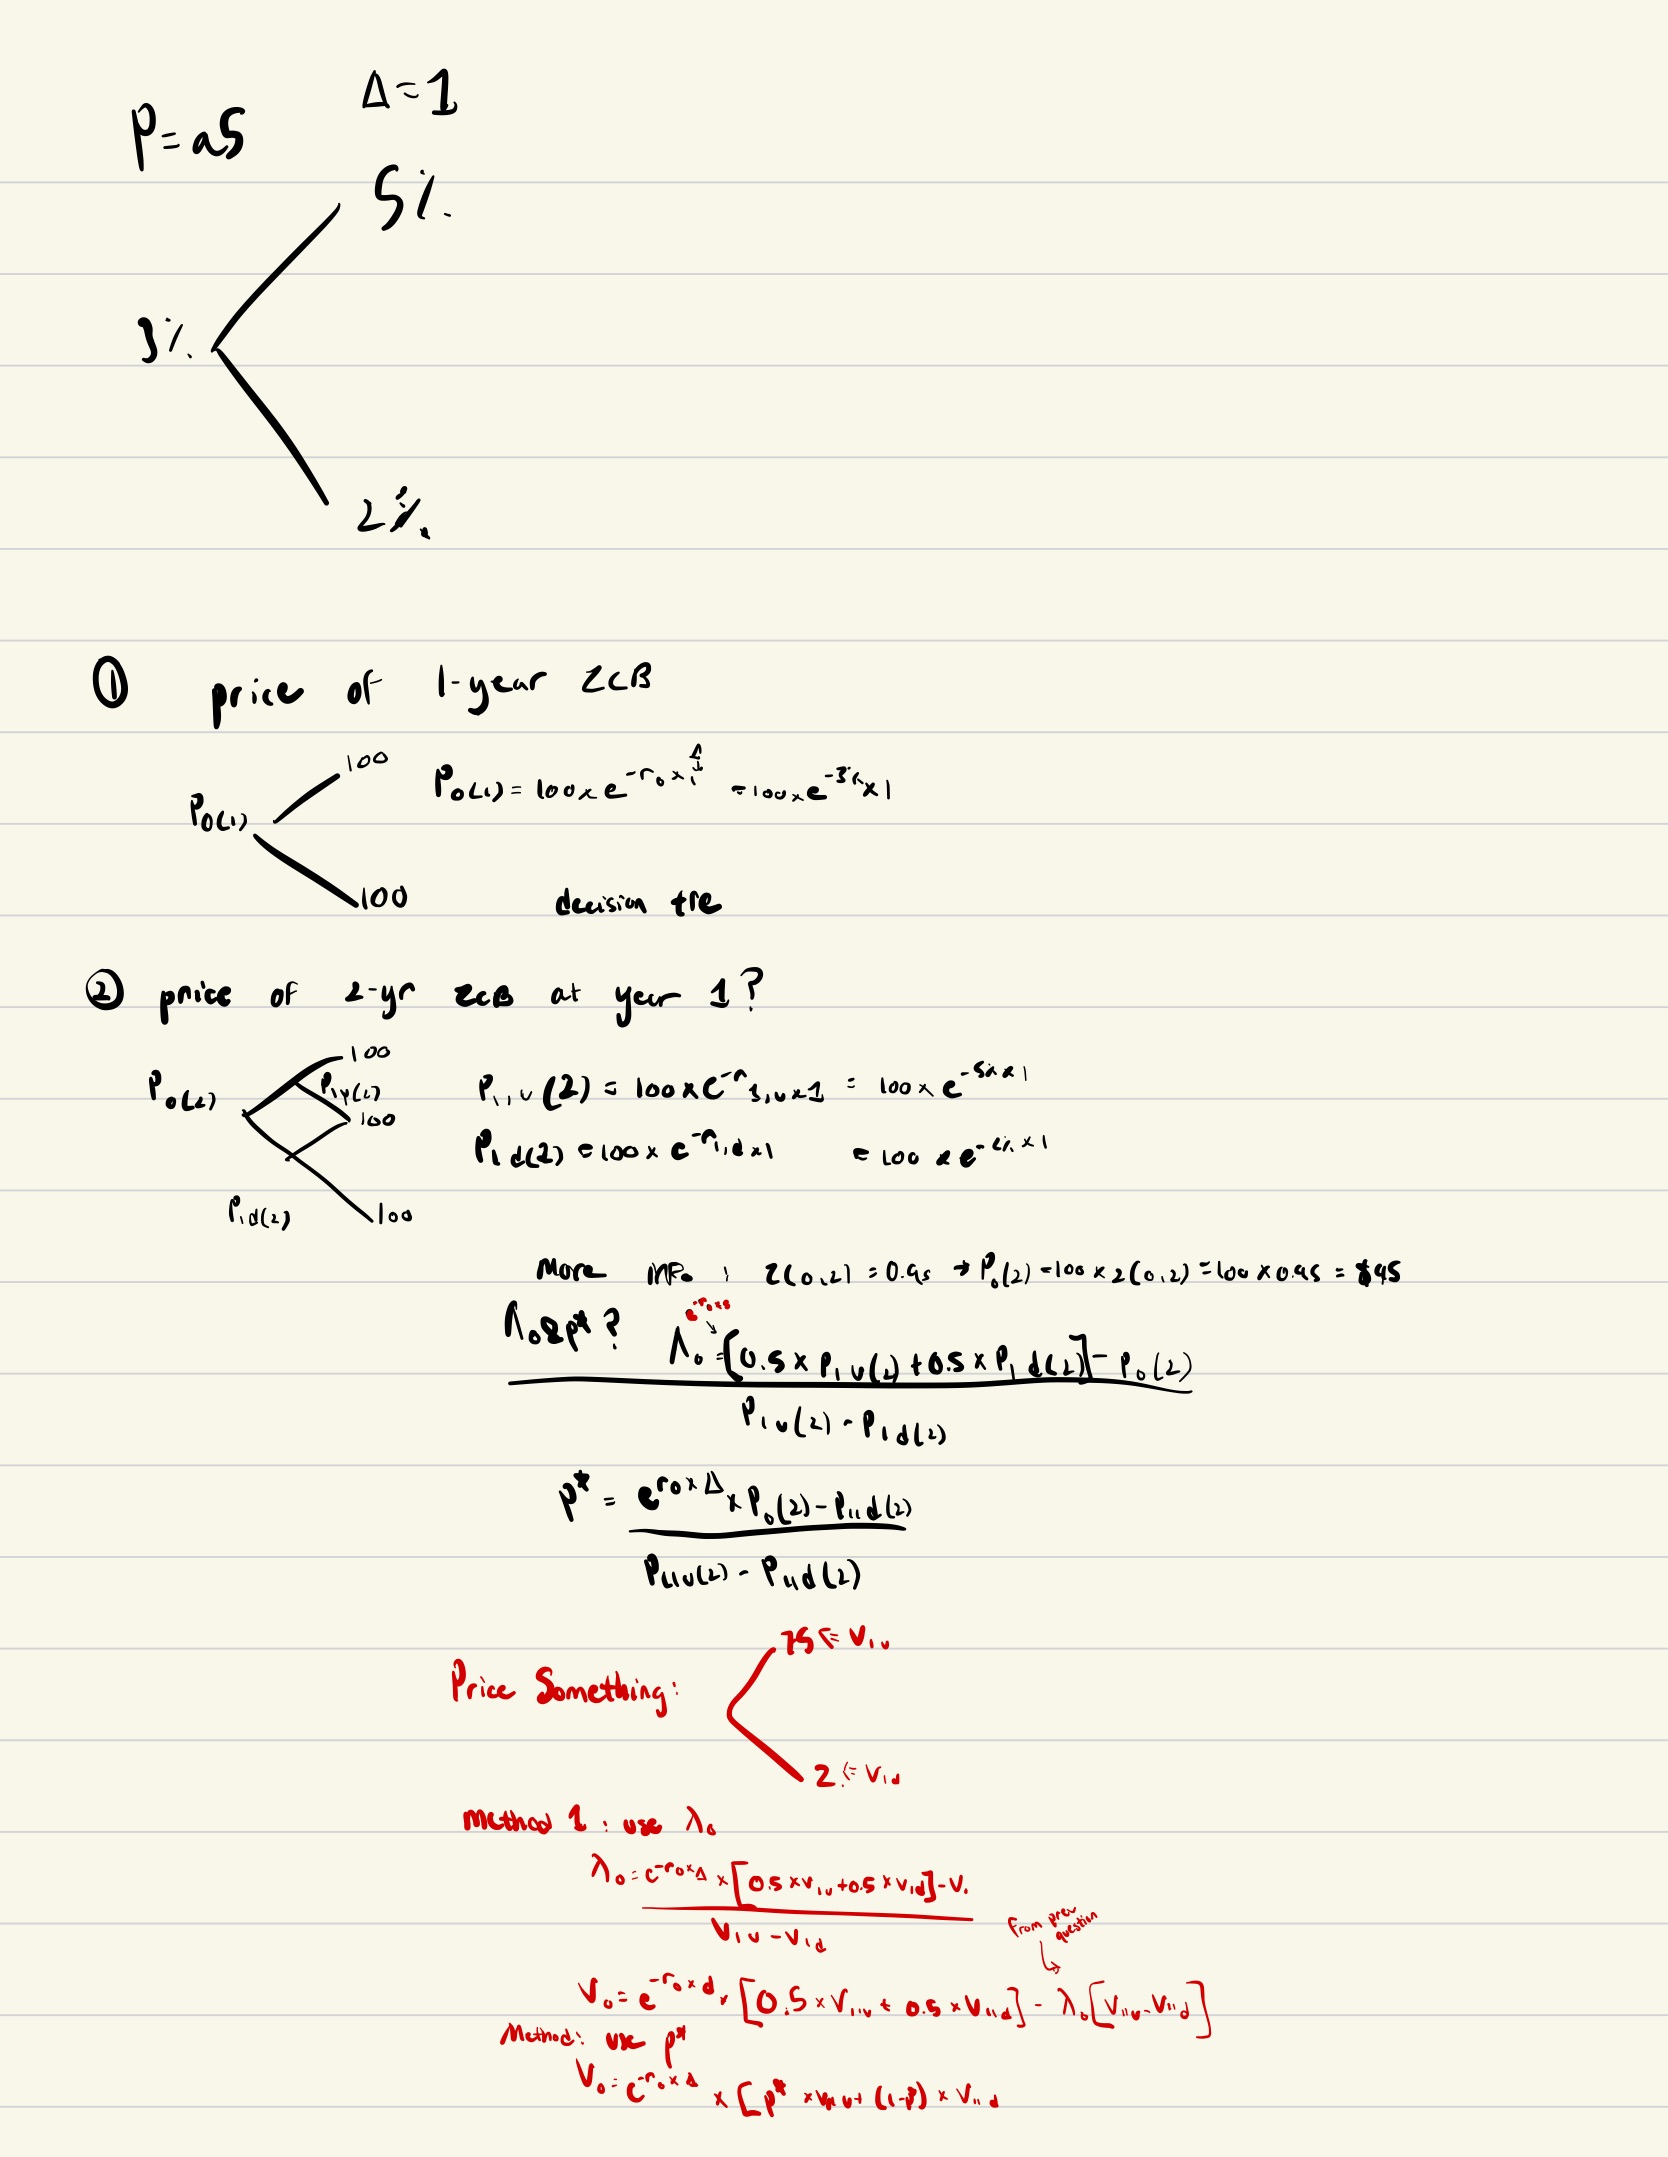 Δ=1
P=0.5
5%
3%
2%
① price of 1-year ZCB
100
P₀(1) = 100 x e^(-r₀ x Δ 1) = 100 x e^(-3% x 1)
P₀(1)
100
decision tre
② price of 2-yr ZCB at year 1?
100
P₀(2) P₁,u(2)
100
P₁,u(2) = 100 x e^(-r₁,u x 1) = 100 x e^(-5% x 1)
P₁d(2) = 100 x e^(-r₁,d x 1) = 100 x e^(-2% x 1)
P₁d(2) 100
More info : Z(0,2) = 0.95 → P₀(2) = 100 x Z(0,2) = 100 x 0.95 = $95
λ₀ & p* ?
e^(-r₀ x Δ)
λ₀ = [0.5 x P₁u(2) + 0.5 x P₁d(2)] - P₀(2)
P₁u(2) - P₁d(2)
p* = e^(r₀ x Δ) x P₀(2) - P₁,d(2)
P₁,u(2) - P₁,d(2)
75 ⇐ V₁u
Price Something:
2 ⇐ V₁d
Method 1 : use λ₀
λ₀ = e^(-r₀ x Δ) x [0.5 x V₁u + 0.5 x V₁d] - V₀
V₁u - V₁d
from prev question
V₀ = e^(-r₀ x Δ) x [0.5 x V₁,u + 0.5 x V₁,d] - λ₀[V₁,u - V₁,d]
Method: use p*
V₀ = e^(-r₀ x Δ) x [p* x V₁,u + (1-p) x V₁,d